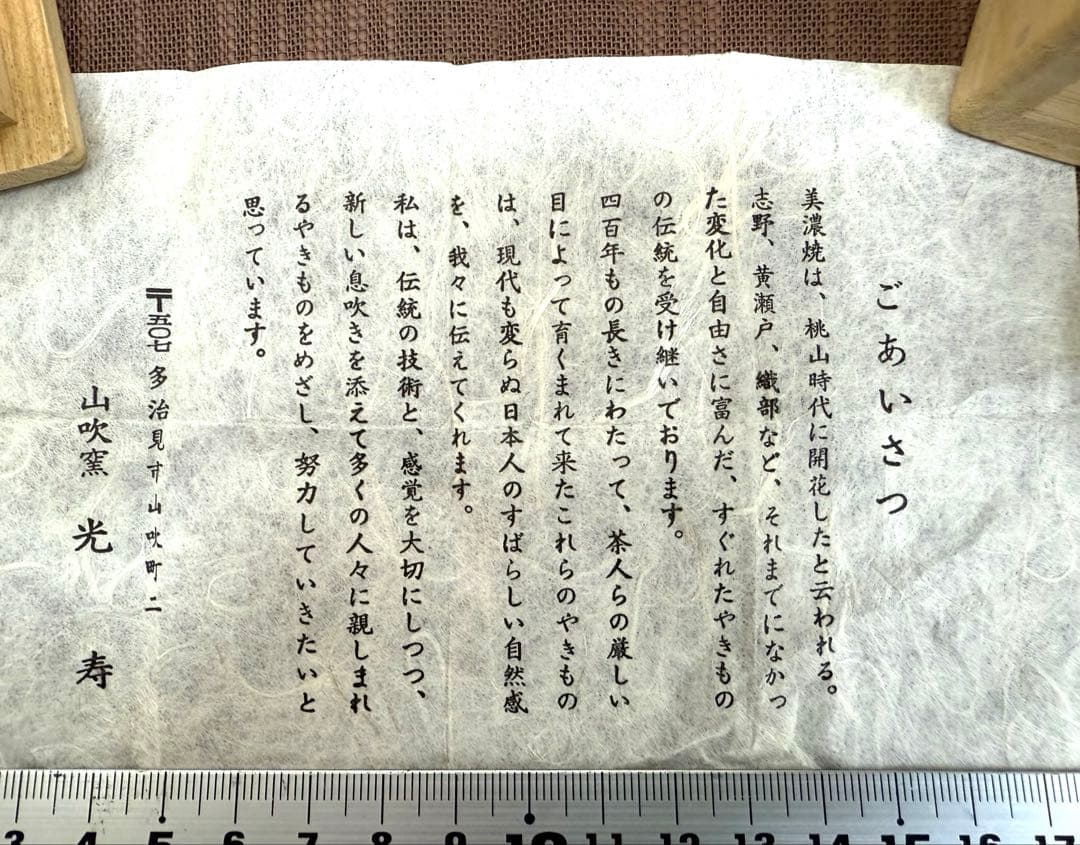 ごあいさつ
美濃焼は、桃山時代に開花したと云われる。
志野、黄瀬戸、織部など、それまでになかっ
た変化と自由さに富んだ、すぐれたやきもの
の伝統を受け継いでおります。
四百年もの長きにわたって、茶人らの厳しい
目によって育くまれて来たこれらのやきもの
は、現代も変らぬ日本人のすばらしい自然感
を、我々に伝えてくれます。
私は、伝統の技術と、感覚を大切にしつつ、
新しい息吹きを添えて多くの人々に親しまれ
るやきものをめざし、努力していきたいと
思っています。
〒五〇七 多治見市山吹町二
山吹窯 光寿
3 4 5 6 7 8 9 10 11 12 13 14 15 16 17